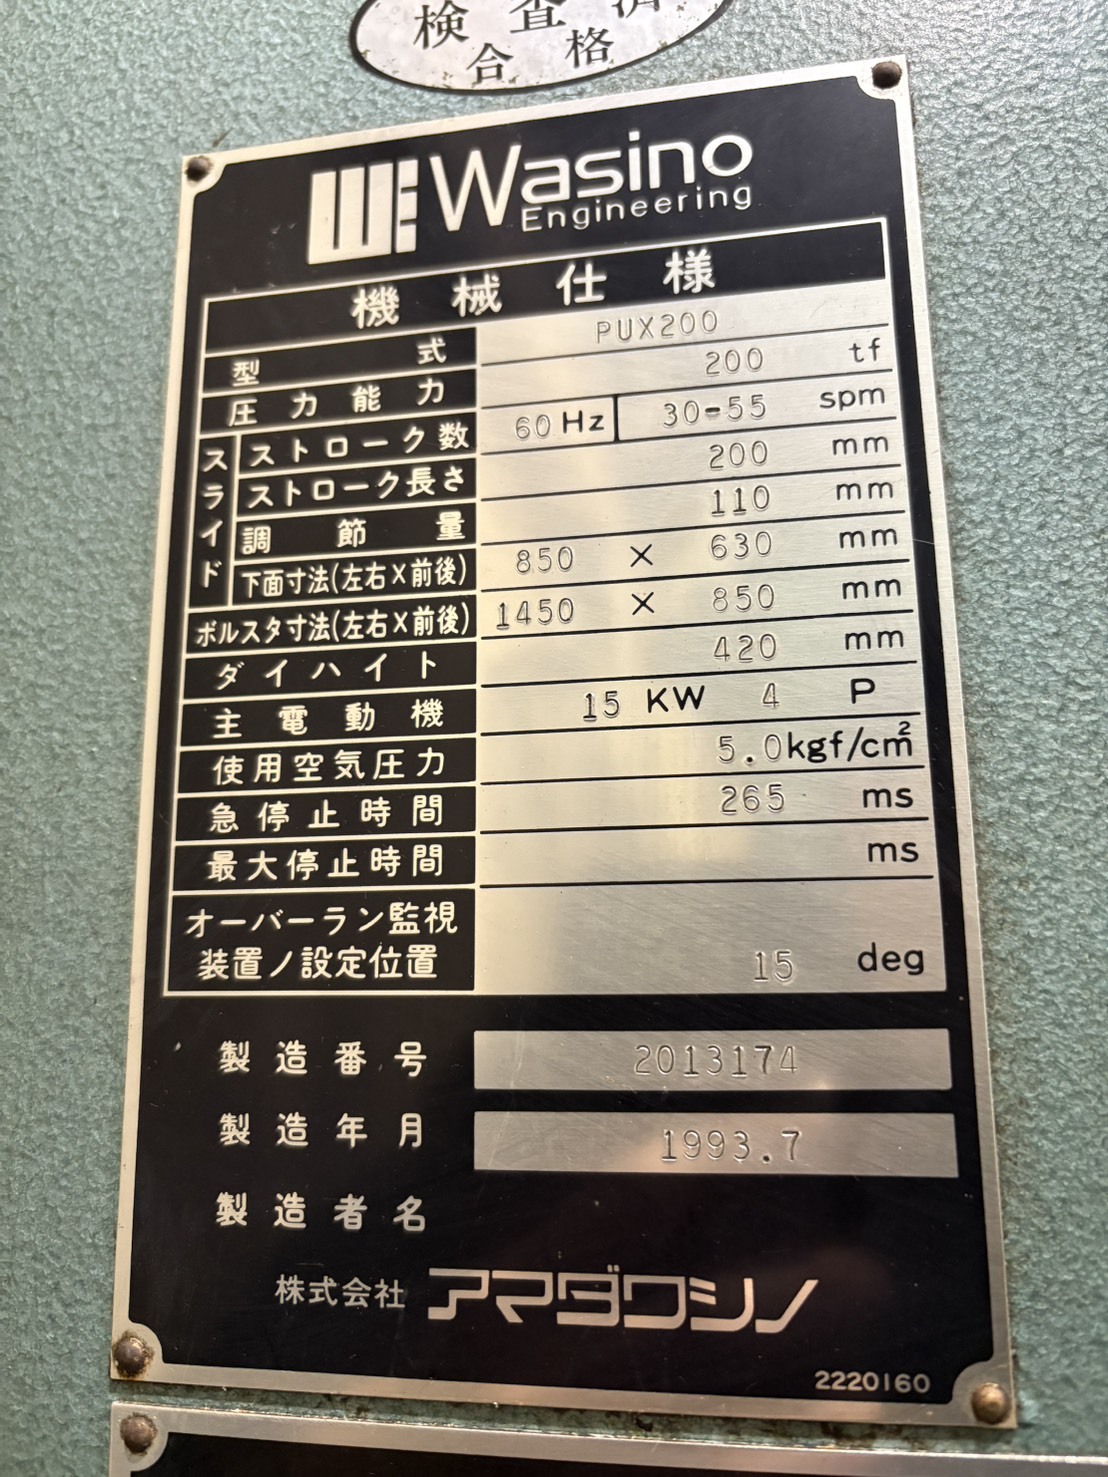 検査済
合格
Wasino
Engineering
機械仕様
型式 PUX200
圧力能力 200 tf
スライド
ストローク数 60 Hz 30-55 spm
ストローク長さ 200 mm
調節量 110 mm
下面寸法(左右×前後) 850 × 630 mm
ボルスタ寸法(左右×前後) 1450 × 850 mm
ダイハイト 420 mm
主電動機 15 KW 4 P
使用空気圧力 5.0 kgf/cm²
急停止時間 265 ms
最大停止時間 ms
オーバーラン監視
装置ノ設定位置 15 deg
製造番号 2013174
製造年月 1993.7
製造者名
株式会社 アマダワシノ
2220160